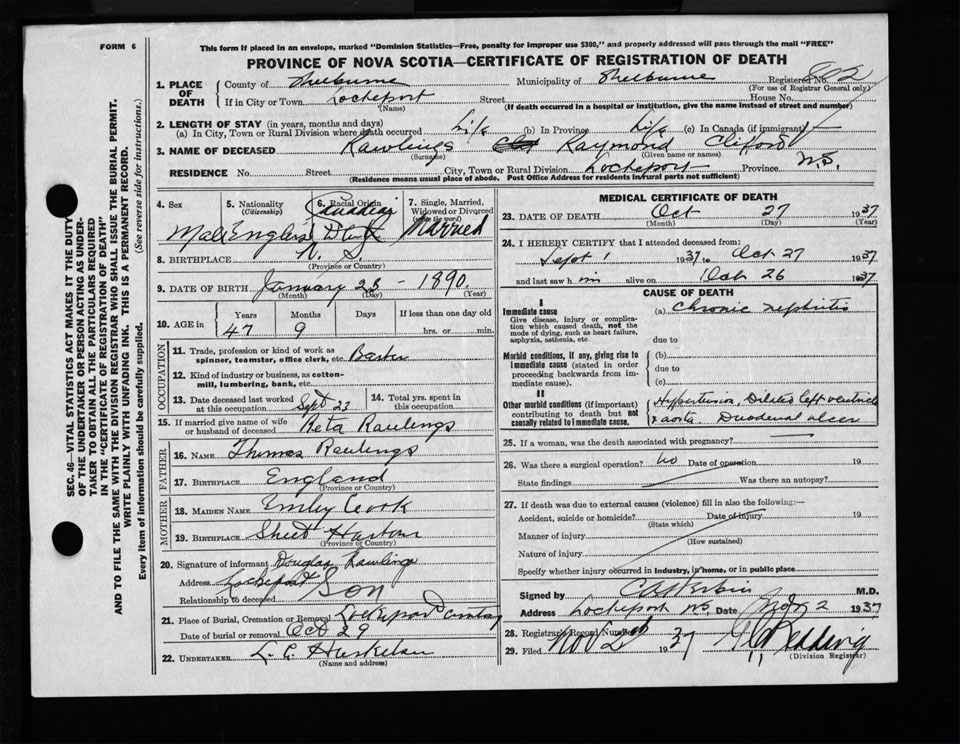 FORM 6
This form if placed in an envelope, marked "Dominion Statistics—Free, penalty for improper use $300," and properly addressed will pass through the mail "FREE"
PROVINCE OF NOVA SCOTIA—CERTIFICATE OF REGISTRATION OF DEATH
SEC. 46—VITAL STATISTICS ACT MAKES IT THE DUTY
OF THE UNDERTAKER OR PERSON ACTING AS UNDER-
TAKER TO OBTAIN ALL THE PARTICULARS REQUIRED
IN THE "CERTIFICATE OF REGISTRATION OF DEATH"
AND TO FILE THE SAME WITH THE DIVISION REGISTRAR WHO SHALL ISSUE THE BURIAL PERMIT.
WRITE PLAINLY WITH UNFADING INK. THIS IS A PERMANENT RECORD.
Every item of information should be carefully supplied. (See reverse side for instructions.)
1. PLACE OF DEATH
County of Shelburne Municipality of Shelburne Registered No. 802
(For use of Registrar General only)
If in City or Town Lockeport Street House No.
(Name) (If death occurred in a hospital or institution, give the name instead of street and number)
2. LENGTH OF STAY (in years, months and days)
(a) In City, Town or Rural Division where death occurred Life (b) In Province Life (c) In Canada (if immigrant)
3. NAME OF DECEASED Rawlings Raymond Clifford
(Surname) (Given name or names)
RESIDENCE No. Street City, Town or Rural Division Lockeport Province N.S.
(Residence means usual place of abode. Post Office Address for residents in rural parts not sufficient)
4. Sex 5. Nationality (Citizenship) 6. Racial Origin 7. Single, Married, Widowed or Divorced (write the word)
Male English Married
8. BIRTHPLACE N. S.
(Province or Country)
9. DATE OF BIRTH January 25 - 1890
(Month) (Day) (Year)
10. AGE in Years Months Days If less than one day old
47 9 hrs. or min.
OCCUPATION
11. Trade, profession or kind of work as
spinner, teamster, office clerk, etc.
12. Kind of industry or business, as cotton-
mill, lumbering, bank, etc.
13. Date deceased last worked
at this occupation Sept 23
14. Total yrs. spent in
this occupation
15. If married give name of wife
or husband of deceased Reta Rawlings
FATHER
16. NAME Thomas Rawlings
17. BIRTHPLACE England
(Province or Country)
MOTHER
18. MAIDEN NAME Emily Cook
19. BIRTHPLACE Sheet Harbour
(Province or Country)
20. Signature of informant Douglas Rawlings
Address Lockeport
Relationship to deceased Son
21. Place of Burial, Cremation or Removal Lockeport
Date of burial or removal Oct 29
22. UNDERTAKER
(Name and address)
MEDICAL CERTIFICATE OF DEATH
23. DATE OF DEATH Oct 27 1937
(Month) (Day) (Year)
24. I HEREBY CERTIFY that I attended deceased from
Sept 1 1937 to Oct 27 1937
and last saw him alive on Oct 26 1937
CAUSE OF DEATH
I
Immediate cause
Give disease, injury or complica-
tion which caused death, not the
mode of dying, such as heart failure,
asphyxia, asthenia, etc.
(a) Chronic nephritis
due to
Morbid conditions, if any, giving rise to
immediate cause (stated in order
proceeding backwards from im-
mediate cause).
(b)
due to
(c)
II
Other morbid conditions (if important)
contributing to death but not
causally related to immediate cause.
Hypertension, Dilated left ventricle
& aorta. Duodenal ulcer
25. If a woman, was the death associated with pregnancy?
26. Was there a surgical operation? no Date of operation 19
State findings Was there an autopsy?
27. If death was due to external causes (violence) fill in also the following:—
Accident, suicide or homicide? Date of injury 19
(State which)
Manner of injury
(How sustained)
Nature of injury
Specify whether injury occurred in Industry, in home, or in public place
Signed by M.D.
Address Lockeport NS Date Nov 2 1937
28. Registrar's Record Number
29. Filed Nov 2 1937
(Division Registrar)